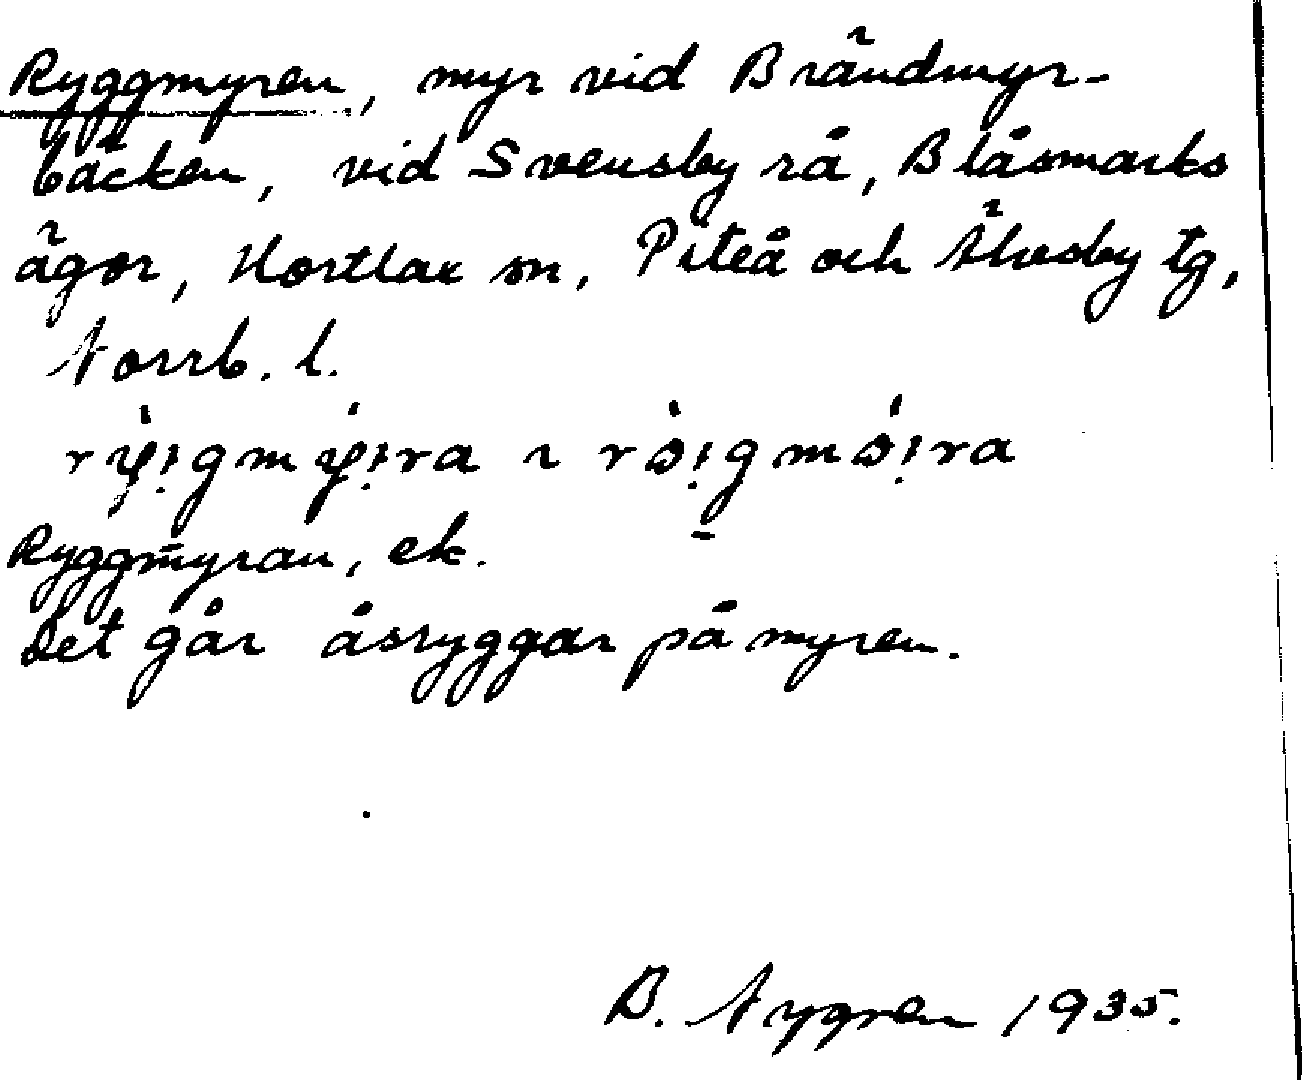 Ryggmyren, myr vid Brändmyr-
bäcken, vid Svensby rå, Blåsmarks
ägor, Hortlax sn, Piteå och Älvsby tg,
Norrb. l.
Ryggmyran, ek.
Det går åsryggar på myren.
B. Nygren 1935.